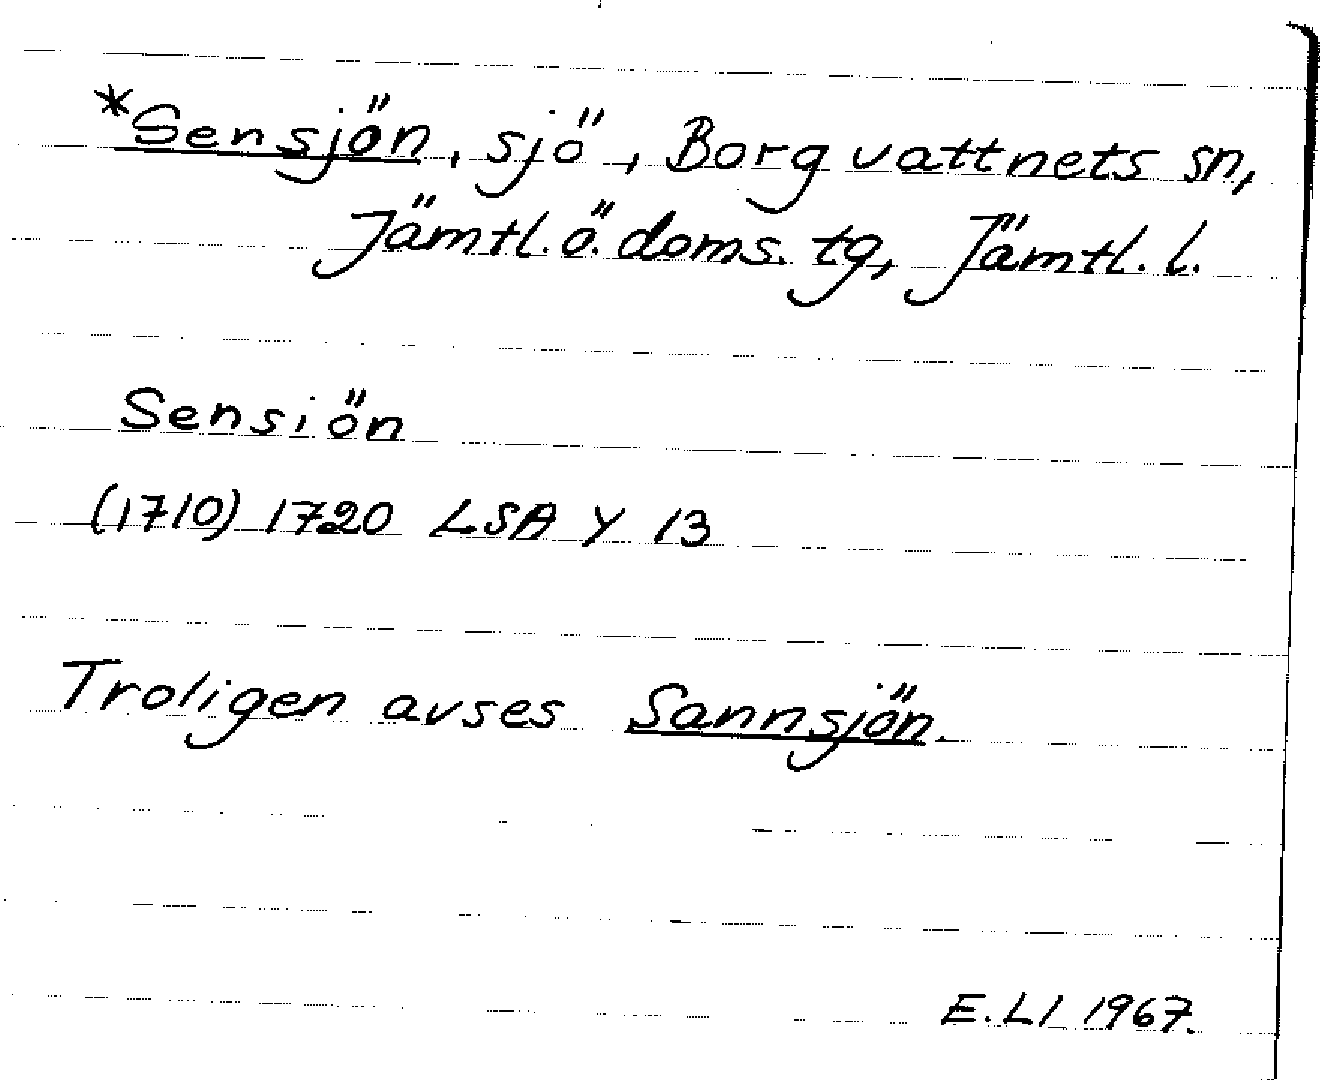 *Sensjön, sjö, Borgvattnets sn,
Jämtl. ö. doms. tg, Jämtl. l.
Sensiön
(1710) 1720 LSA Y 13
Troligen avses Sannsjön.
E. Ll 1967.